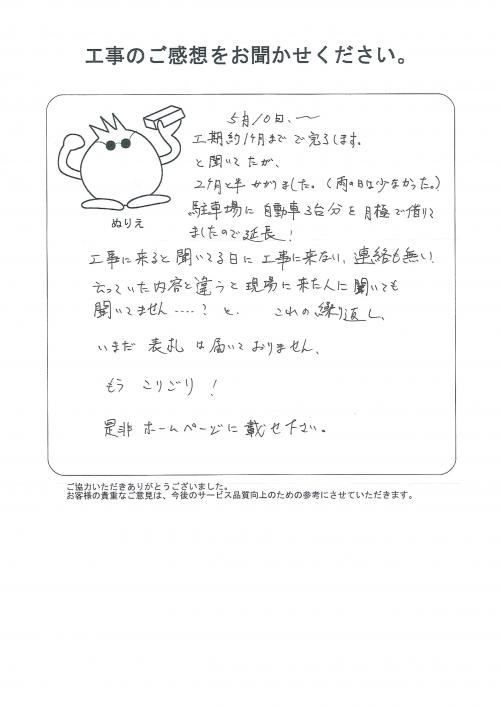 工事のご感想をお聞かせください。
5月10日、～
工期約1ヶ月までで完了します。
と聞いてたが、
2ヶ月と半かかりました。(雨の日は少なかった。)
駐車場に自動車3台分を月極で借りて
ましたので延長！
ぬりえ
工事に来ると聞いてる日に工事に来ない、連絡も無い！
云っていた内容と違うと現場に来た人に聞いても
聞いてません‥‥？と、 これの繰り返し、
いまだ 表札は届いておりません、
もう こりごり！
是非ホームページに載せ下さい。
ご協力いただきありがとうございました。
お客様の貴重なご意見は、今後のサービス品質向上のための参考にさせていただきます。